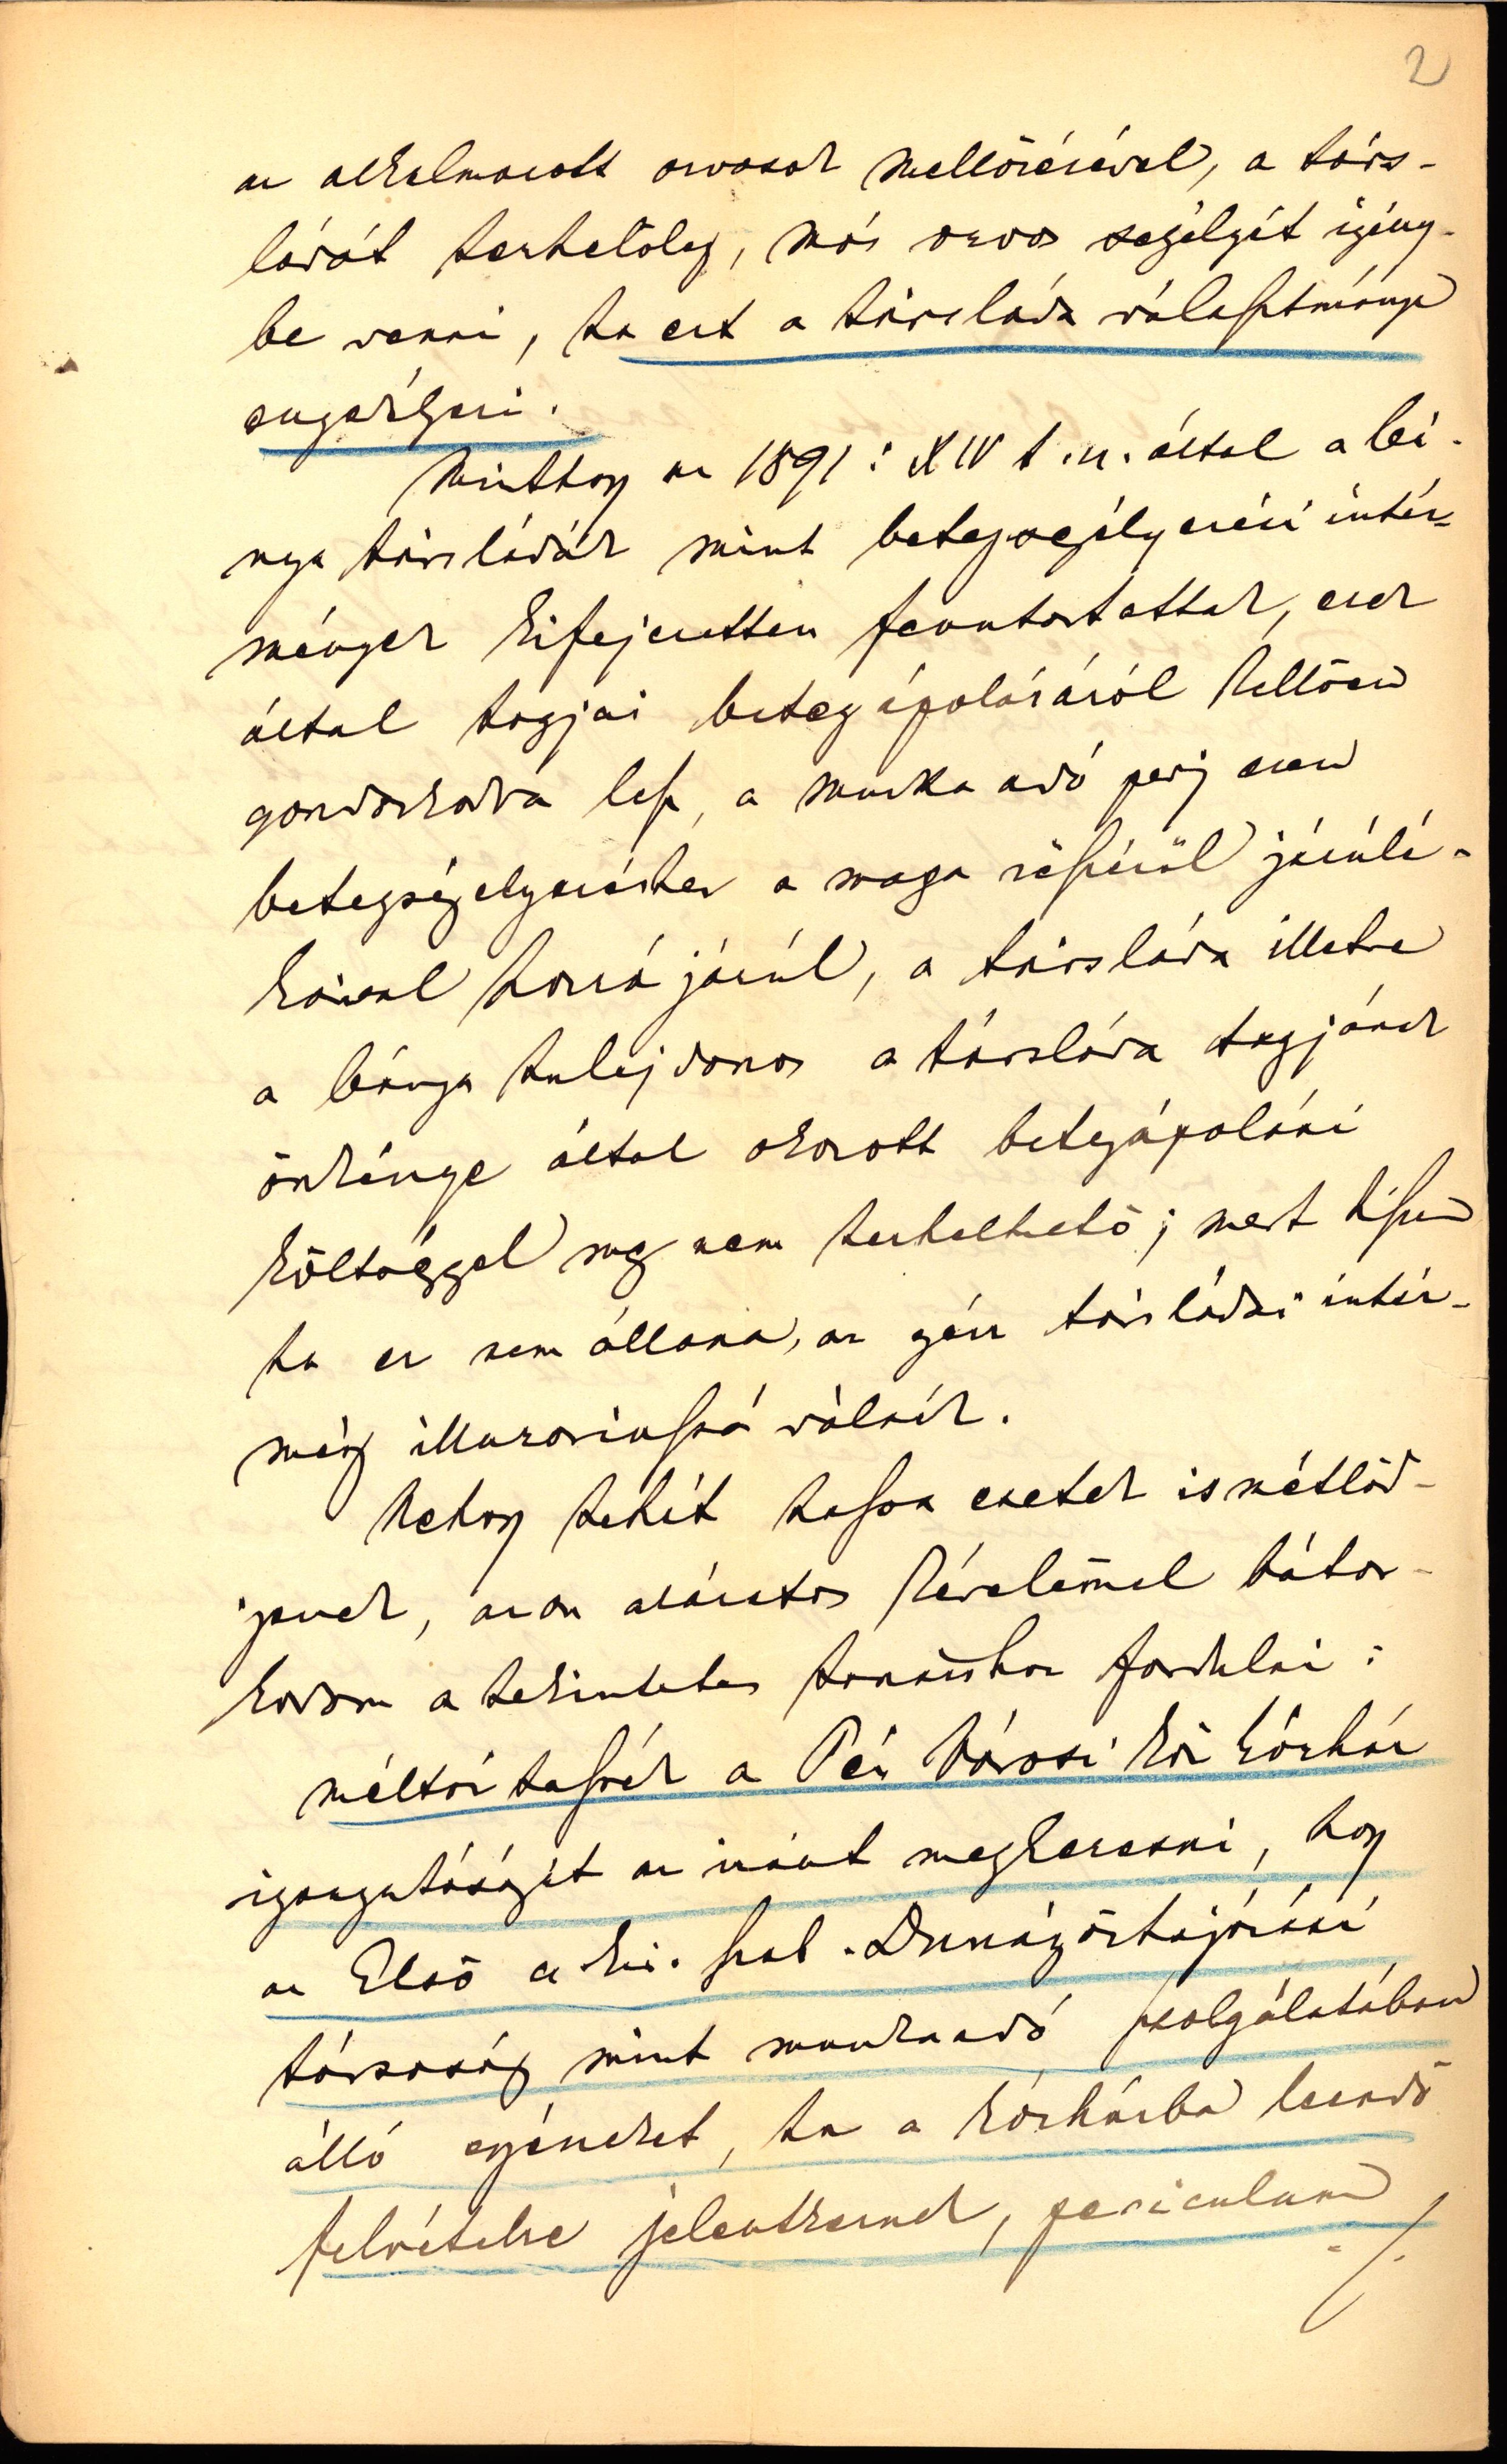 2
az alkalmazott orvosok mellőzésével, a társ-
ládát terhelőleg, más orvos segélyét igény-
be venni, ha ezt a társláda választmánya
engedélyezi.
Minthogy az 1891: XIV t. cz. által a bá-
nya társládák mint betegsegélyezési intéz-
mények kifejezetten fenntartattak, ezek
által tagjai betegápolásáról kellően
gondoskodva lesz, a munka adó pedig ezen
betegségélyezéshez a maga részéről járulé-
kaival hozzá járúl, a társláda illetve
a bánya tulajdonos a társláda tagjának
önkénye által okozott betegápolási
költséggel meg nem terhelhető; mert hiszen
ha ez nem állana, az egész társládai intéz-
mény illuzoriussá válnék.
Nehogy tehát hasson esetek ismétlőd-
jenek, azon alázatos kérelemmel bátor-
kodom a tekintetes tanácshoz fordulni:
méltóztassék a Pécs Városi köz kórház
igazgatóságát az iránt megkeresni, hogy
az Első cs. kir. szab. Dunagőzhajózási
társaság mint munkaadó szolgálatában
álló egyéneket, ha a kórházba leendő
felvételre jelentkeznek, periculum
./.